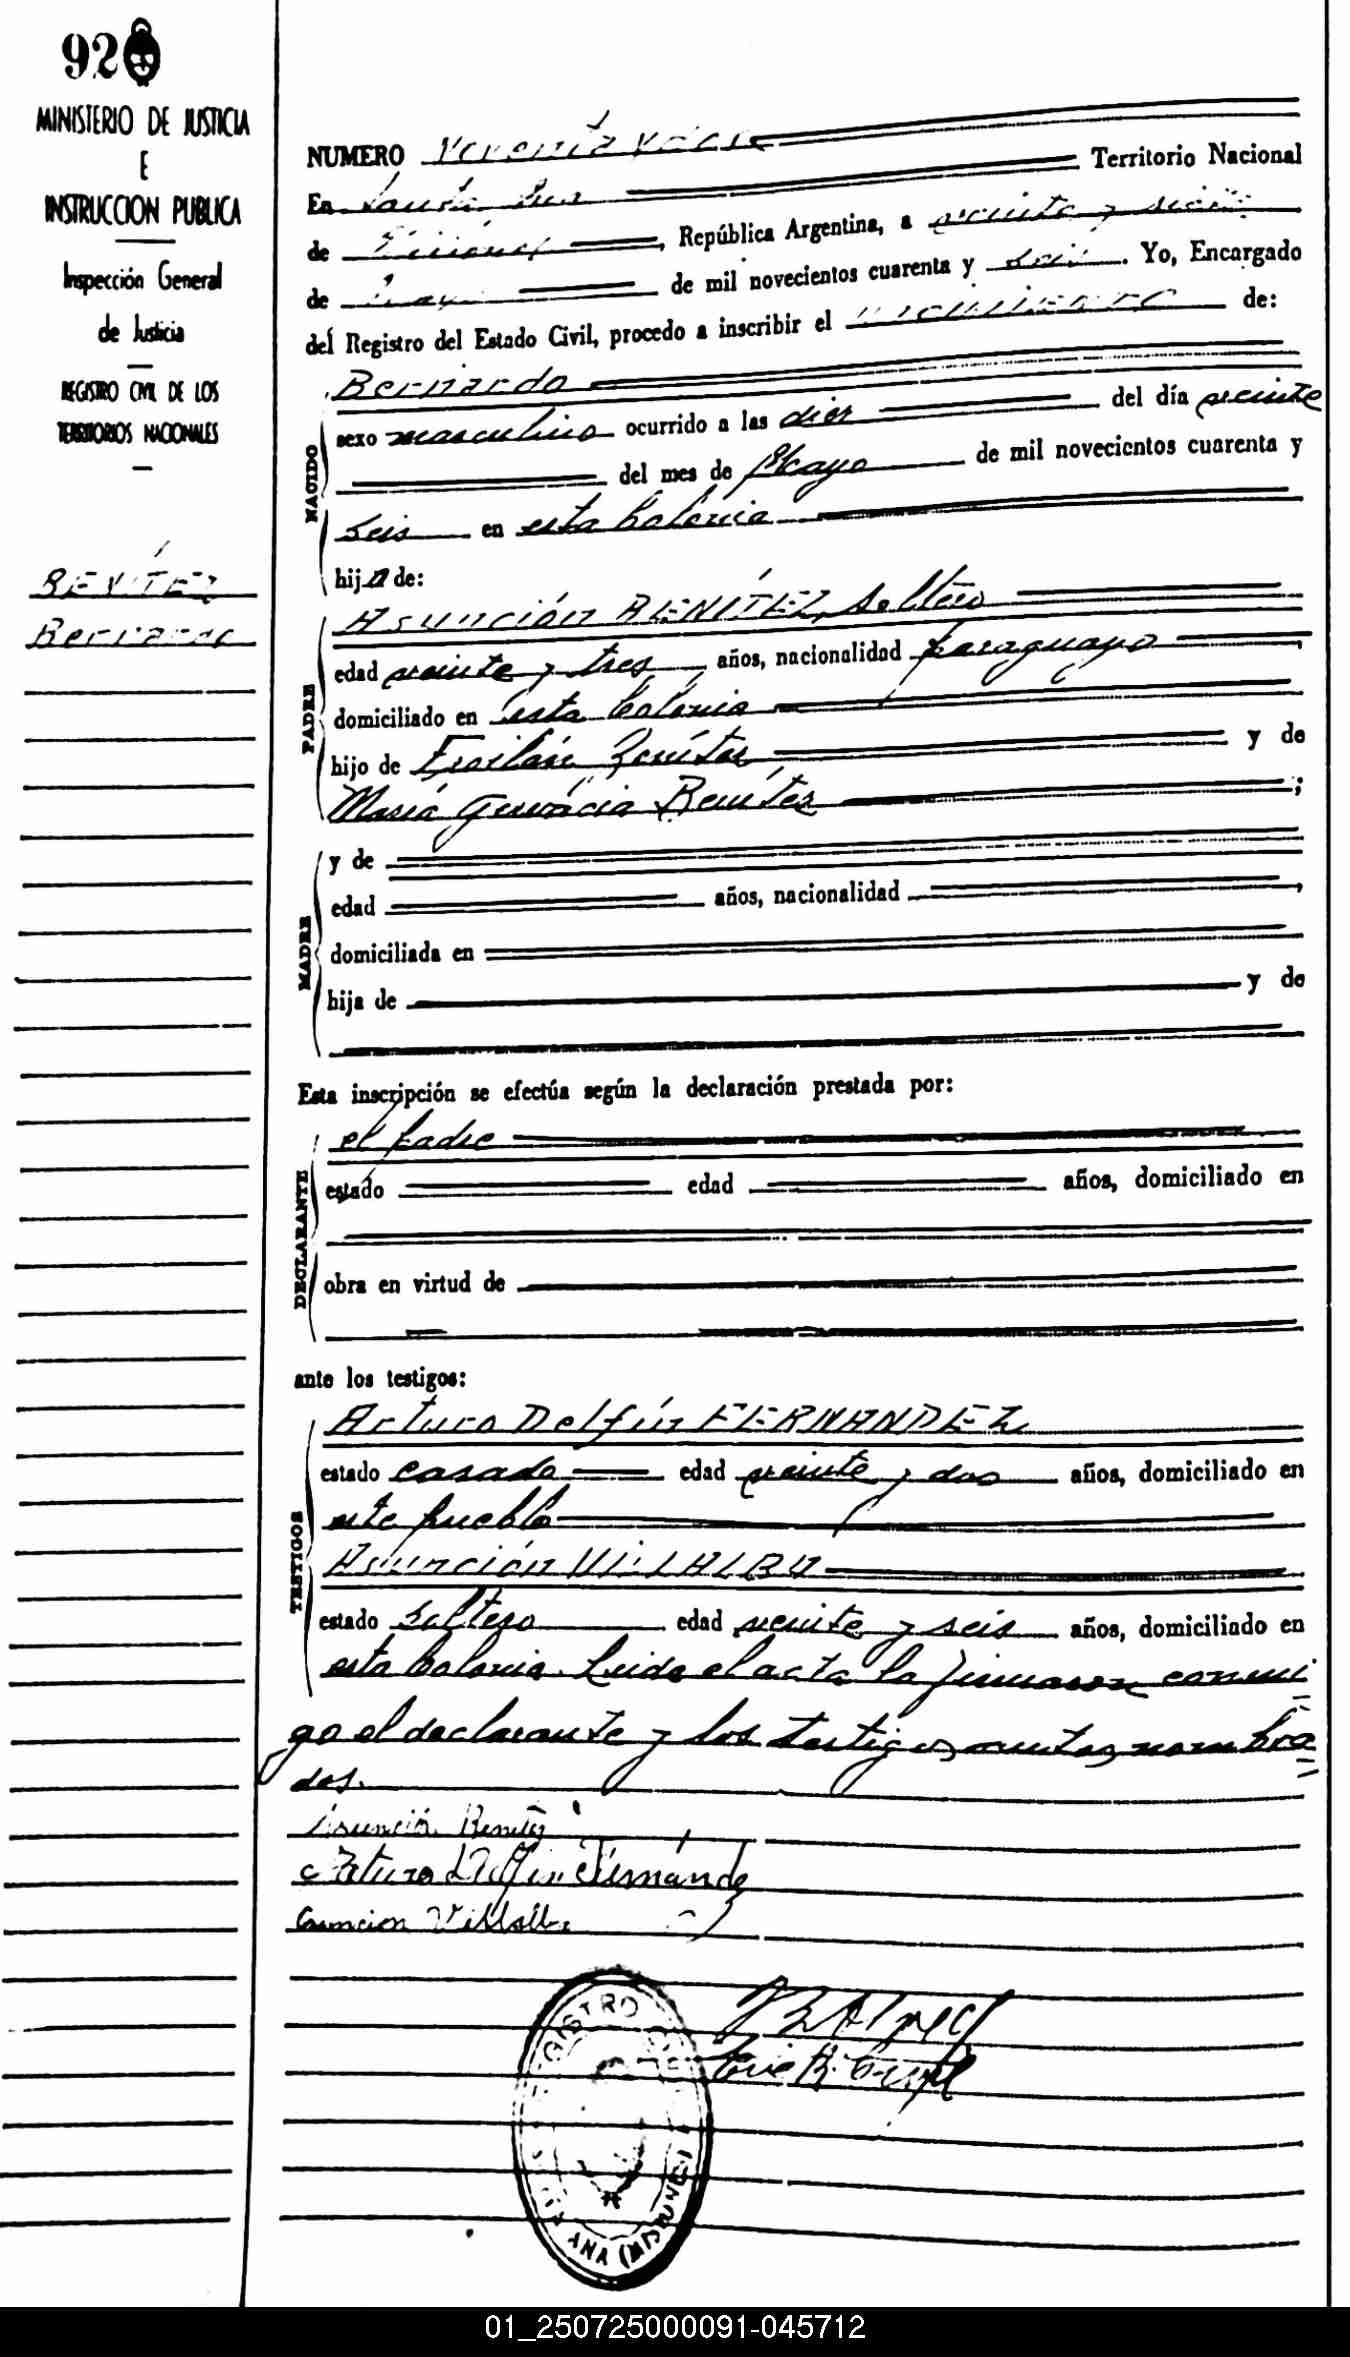 92
MINISTERIO DE JUSTICIA
E
INSTRUCCION PUBLICA
Inspección General
de Justicia
REGISTRO CIVIL DE LOS
TERRITORIOS NACIONALES
BENÍTEZ
Bernardo
NUMERO Noventa
En Santa Ana Territorio Nacional
de Misiones, República Argentina, a veinte y
de Mayo de mil novecientos cuarenta y seis. Yo, Encargado
del Registro del Estado Civil, procedo a inscribir el nacimiento de:
NACIDO
Bernardo
sexo masculino ocurrido a las diez del día veinte
del mes de Mayo de mil novecientos cuarenta y
seis en esta Colonia
hijo de:
PADRE
Asunción BENÍTEZ, soltero
edad veinte y tres años, nacionalidad paraguayo,
domiciliado en esta Colonia
hijo de Benítez y de
María Benítez;
MADRE
y de
edad años, nacionalidad,
domiciliada en
hija de y de
Esta inscripción se efectúa según la declaración prestada por:
DECLARANTE
el padre
estado edad años, domiciliado en
obra en virtud de
ante los testigos:
TESTIGOS
Arturo Delfín FERNANDEZ
estado casado edad veinte y dos años, domiciliado en
este pueblo
Asunción VILLALBA
estado soltero edad veinte y seis años, domiciliado en
esta Colonia. Leida el acta la firmaron conmi
go el declarante y los testigos nombra
dos.
Asunción Benítez
Arturo Delfin Fernández
Asuncion Villalba
REGISTRO
ANA (MISIONES)
01_250725000091-045712